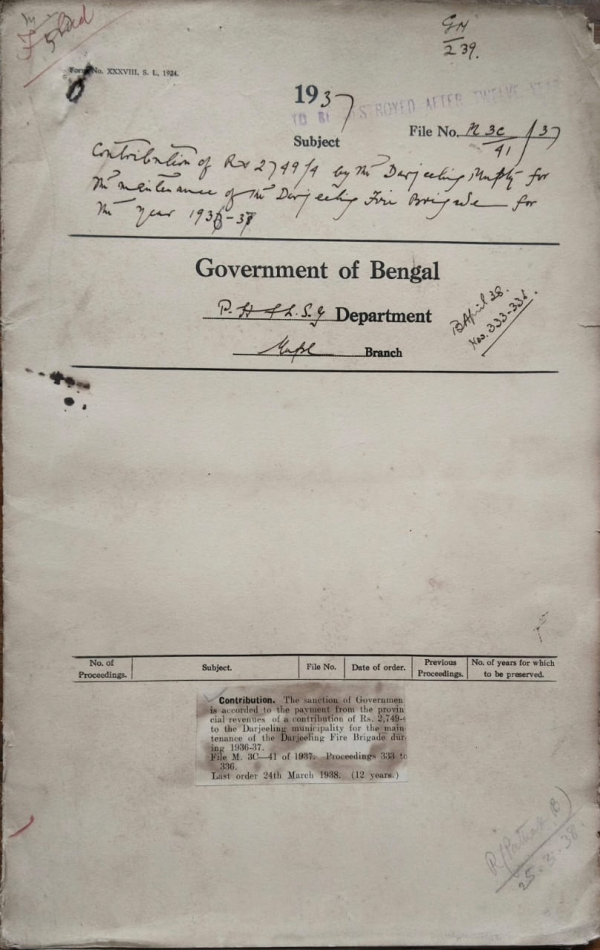 GH
2 39.
Form No. XXXVIII, S. I., 1924.
1937
TO BE DESTROYED AFTER TWELVE YEARS
Subject
File No. M 3C/41 / 37
Contribution of Rs 2749/4 by the Darjeeling Mupty for
the maintenance of the Darjeeling Fire Brigade for
the year 1936-37
Government of Bengal
P. H & L. S. G Department
Branch
B April 38.
Nos. 333-336.
No. of Proceedings.
Subject.
File No.
Date of order.
Previous Proceedings.
No. of years for which to be preserved.
Contribution. The sanction of Governmen
is accorded to the payment from the provin
cial revenues of a contribution of Rs. 2,749-
to the Darjeeling municipality for the main
tenance of the Darjeeling Fire Brigade dur
ing 1936-37.
File M. 3C—41 of 1937. Proceedings 333 to
336.
Last order 24th March 1938. (12 years.)
25.3.38.